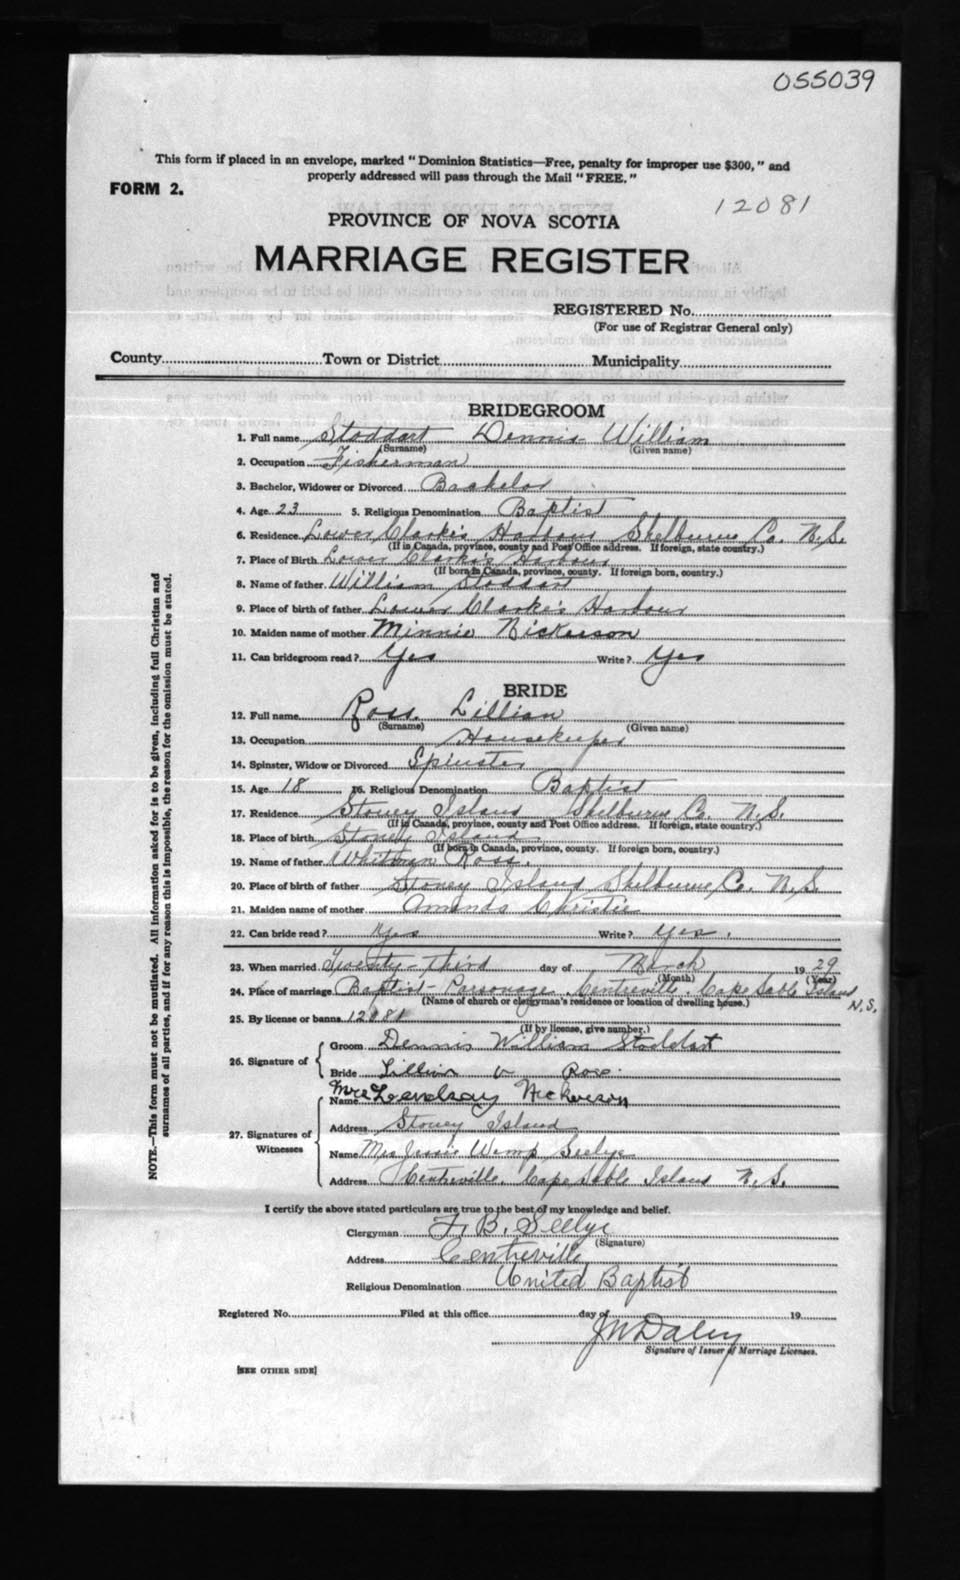 055039
This form if placed in an envelope, marked "Dominion Statistics—Free, penalty for improper use $300," and
properly addressed will pass through the Mail "FREE."
FORM 2.
12081
PROVINCE OF NOVA SCOTIA
MARRIAGE REGISTER
REGISTERED No.
(For use of Registrar General only)
County Town or District Municipality
BRIDEGROOM
1. Full name Stoddart Dennis William
(Surname) (Given name)
2. Occupation Fisherman
3. Bachelor, Widower or Divorced Bachelor
4. Age 23 5. Religious Denomination Baptist
6. Residence Lower Clarke's Harbour Shelburne Co. N.S.
(If in Canada, province, county and Post Office address. If foreign, state country.)
7. Place of Birth Lower Clarke's Harbour
(If born in Canada, province, county. If foreign born, country.)
8. Name of father William Stoddart
9. Place of birth of father Lower Clarke's Harbour
10. Maiden name of mother Minnie Nickerson
11. Can bridegroom read? Yes Write? Yes
BRIDE
12. Full name Ross. Lillian
(Surname) (Given name)
13. Occupation Housekeeper
14. Spinster, Widow or Divorced Spinster
15. Age 18 16. Religious Denomination Baptist
17. Residence Stoney Island Shelburne Co. N.S.
(If in Canada, province, county and Post Office address. If foreign, state country.)
18. Place of birth Stoney Island
(If born in Canada, province, county. If foreign born, country.)
19. Name of father Whitman Ross.
20. Place of birth of father Stoney Island Shelburne Co. N.S.
21. Maiden name of mother Amanda Christie
22. Can bride read? Yes Write? Yes.
23. When married Twenty-Third day of March 1929
(Month) (Year)
24. Place of marriage Baptist Parsonage Centreville. Cape Sable Island
(Name of church or clergyman's residence or location of dwelling house.) N.S.
25. By license or banns 12081
(If by license, give number.)
26. Signature of Groom Dennis William Stoddart
Bride Lillian Ross.
27. Signatures of Witnesses
Name Mrs Lendsay Nickerson
Address Stoney Island
Name Mrs Jessie Wemp Seelye
Address Centreville. Cape Sable Island N.S.
I certify the above stated particulars are true to the best of my knowledge and belief.
Clergyman F. B. Seelye
(Signature)
Address Centreville
Religious Denomination United Baptist
Registered No. Filed at this office day of 19
J W Daley
Signature of Issuer of Marriage Licenses.
[SEE OTHER SIDE]
NOTE.—This form must not be mutilated. All information asked for is to be given, including full Christian and
surnames of all parties, and if for any reason this is impossible, the reason for the omission must be stated.